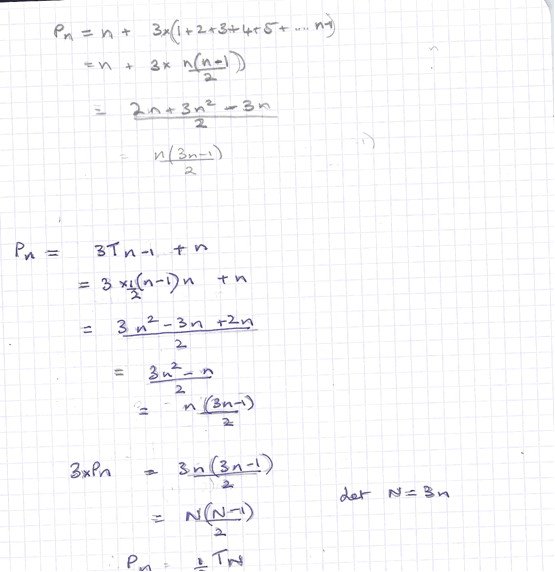 Pn = n + 3×(1+2+3+4+5+....n-1)
= n + 3× n(n-1)/2
= 2n+3n²-3n/2
= n(3n-1)/2
Pn = 3Tn-1 + n
= 3 ×1/2(n-1)n +n
= 3n²-3n+2n/2
= 3n²-n/2
= n(3n-1)/2
3×Pn = 3n(3n-1)/2
let N=3n
= N(N-1)/2
Pn =